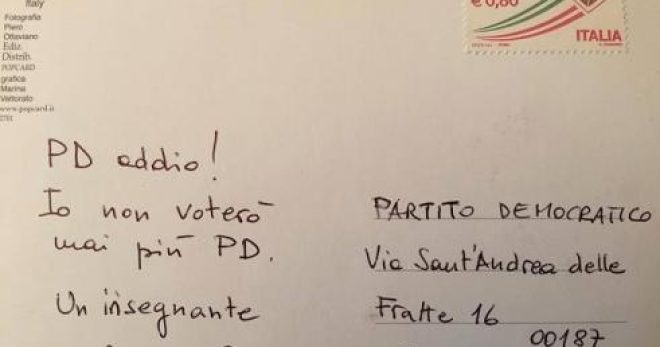 Italy
Fotografia
Piero
Ottaviano
Ediz.
Distrib.
POPCARD
grafica
Marina
Vettorato
www.popcard.it
€0,80
ITALIA
PD addio!
Io non voterò
mai più PD.
Un insegnante
PARTITO DEMOCRATICO
Via Sant'Andrea delle
Fratte 16
00187